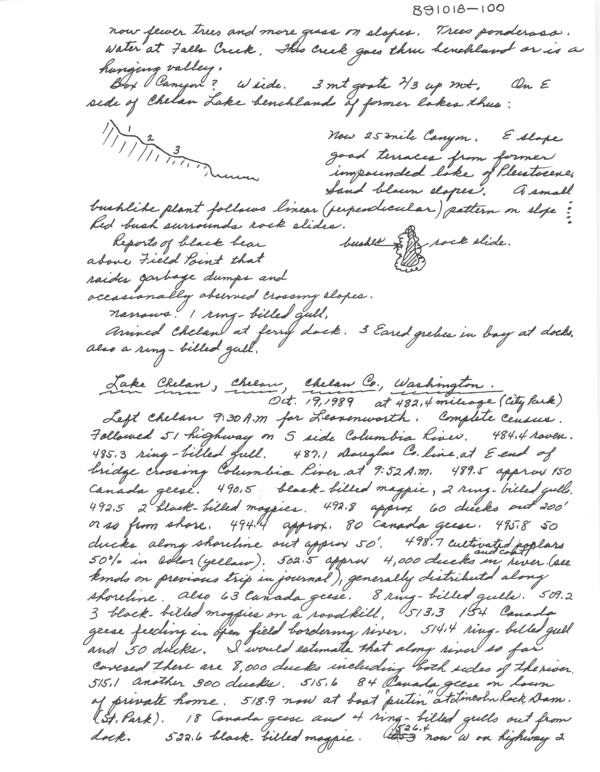 891018-100
now fewer trees and more grass on slopes. Trees ponderosa.
Water at Falls Creek. This creek goes thru benchland or is a
hanging valley.
Box Canyon? W side. 3 mt goats 2/3 up mt. On E
side of Chelan Lake benchlands of former lakes thus:
1
2
3
Now 25 mile Canyon. E slope
good terraces from former
impounded lake of Pleistocene.
Sand blown slopes. A small
bushlike plant follows linear (perpendicular) pattern on slope
Red bush surrounds rock slides.
bushes rock slide.
Reports of black bear
above Field Point that
raider garbage dumps and
occasionally observed crossing slopes.
Narrows. 1 ring-billed gull,
Arrived Chelan at ferry dock. 3 Eared grebes in bay at docks.
also a ring-billed gull.
Lake Chelan, Chelan, Chelan Co., Washington.
Oct. 19, 1989 at 482.4 mileage (City Park)
Left Chelan 9:30 A.M for Leavenworth. Complete Census.
Followed 51 highway on S side Columbia River. 484.4 raven.
485.3 ring-billed gull. 487.1 Douglas Co. line, at E end of
bridge crossing Columbia River at 9:52 A.M. 489.5 approx 150
Canada geese. 490.5 black-billed magpie, 2 ring-billed gulls.
492.5 2 black-billed magpies. 492.8 approx 60 ducks out 200'
or so from shore. 494.4 approx. 80 Canada geese. 495.8 50
ducks along shoreline out approx 50'. 498.7 cultivated poplars
50% in color (yellow). 502.5 approx 4,000 ducks and coots in river (see
kinds on previous trip in journal), generally distributd along
shoreline. Also 63 Canada geese. 8 ring-billed gulls. 509.2
3 black-billed magpies on a roadkill, 513.3 154 Canada
geese feeding in open field bordering river. 514.4 ring-billed gull
and 50 ducks. I would estimate that along river so far
covered there are 8,000 ducks including both sides of the river.
515.1 another 300 ducks. 515.6 84 Canada geese on lawn
of private home. 518.9 now at boat "putin" at Lincoln Rock Dam.
(St. Park). 18 Canada geese and 4 ring-billed gulls out from
dock. 522.6 black-billed magpie. 526.4 now W on highway 2